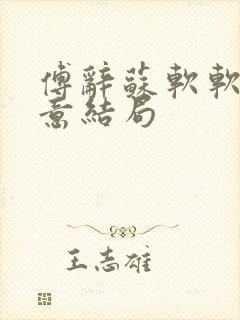 傅辭蘇軟軟
意結局
王志雄